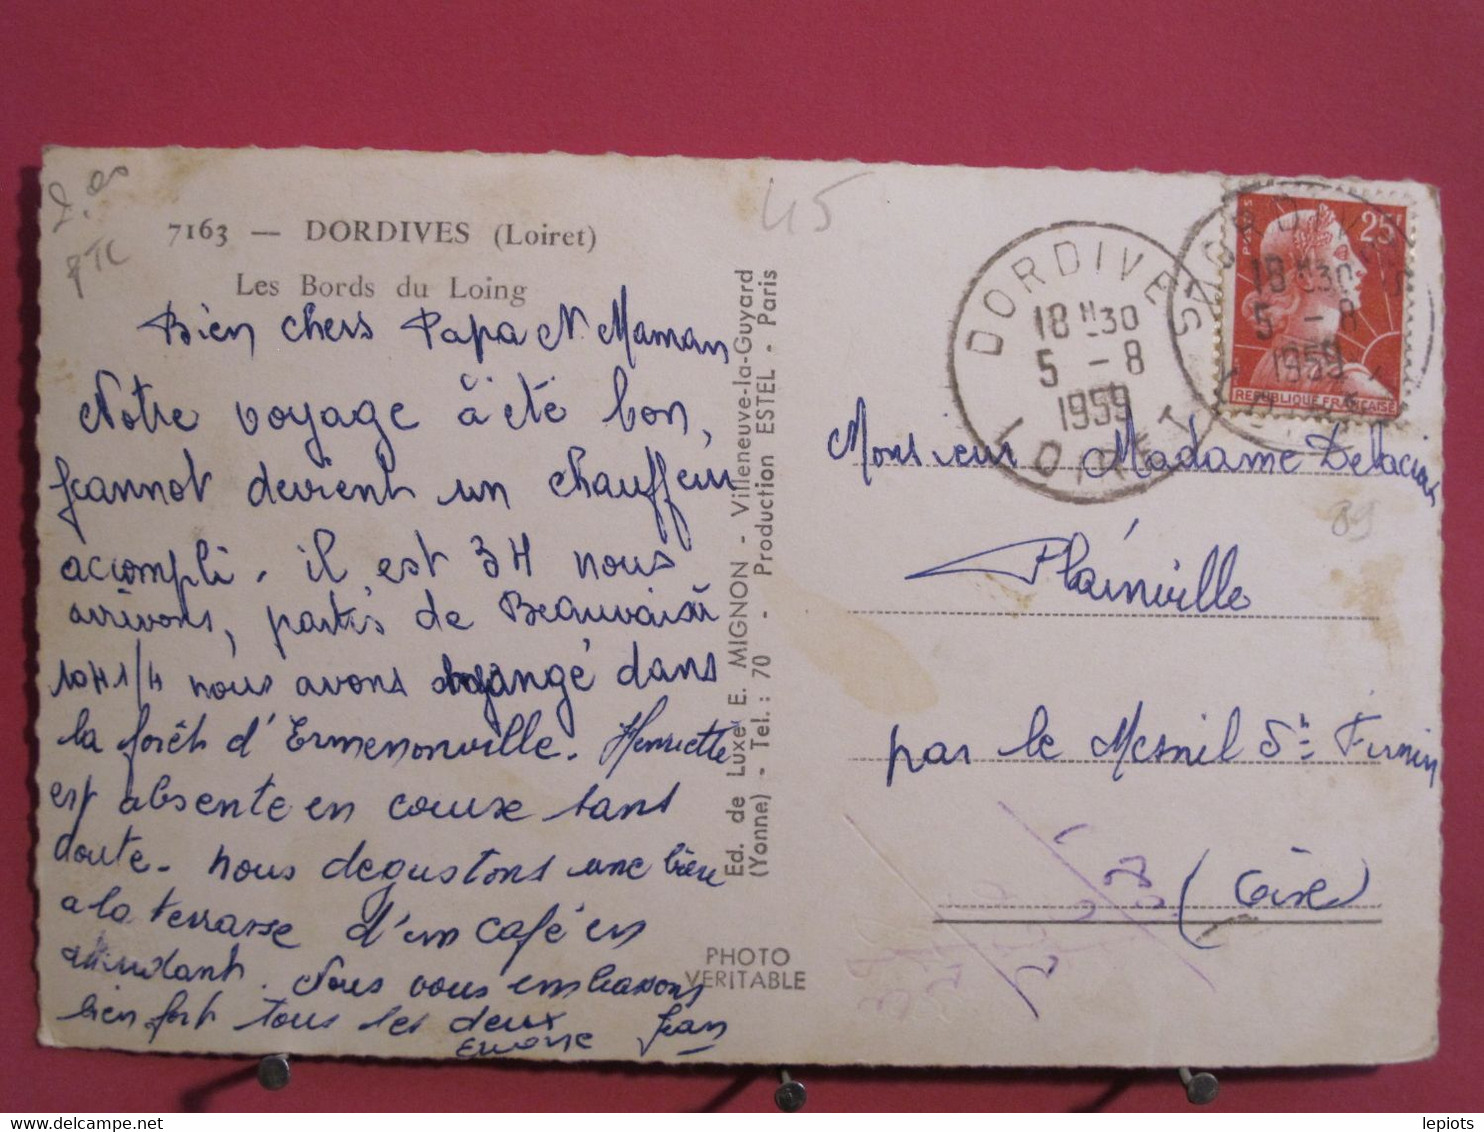 7163 — DORDIVES (Loiret)
Les Bords du Loing
Bien chers Papa et Maman
Notre voyage à été bon,
Jeannot devient un chauffeur
accompli. il est 3H nous
arrivons, partis de Beauvais à
10H1/4 nous avons mangé dans
la forêt d'Ermenonville. Henriette
est absente en course sans
doute. nous degustons une bière
a la terrasse d'un café en
attendant. Nous vous embrassons
bien fort tous les deux
Jean
Ed. de Luxe E. MIGNON - Villeneuve-la-Guyard
(Yonne) - Tel. : 70 - Production ESTEL - Paris
PHOTO
VERITABLE
45
DORDIVES
18H30
5 - 8
1959
LOIRET
25F
POSTES
REPUBLIQUE FRANÇAISE
DORDIVES
18H30
5 - 8
1959
Monsieur Madame Delacroix
89
Plainville
par le Mesnil St Firmin
(Oise)
lepiots